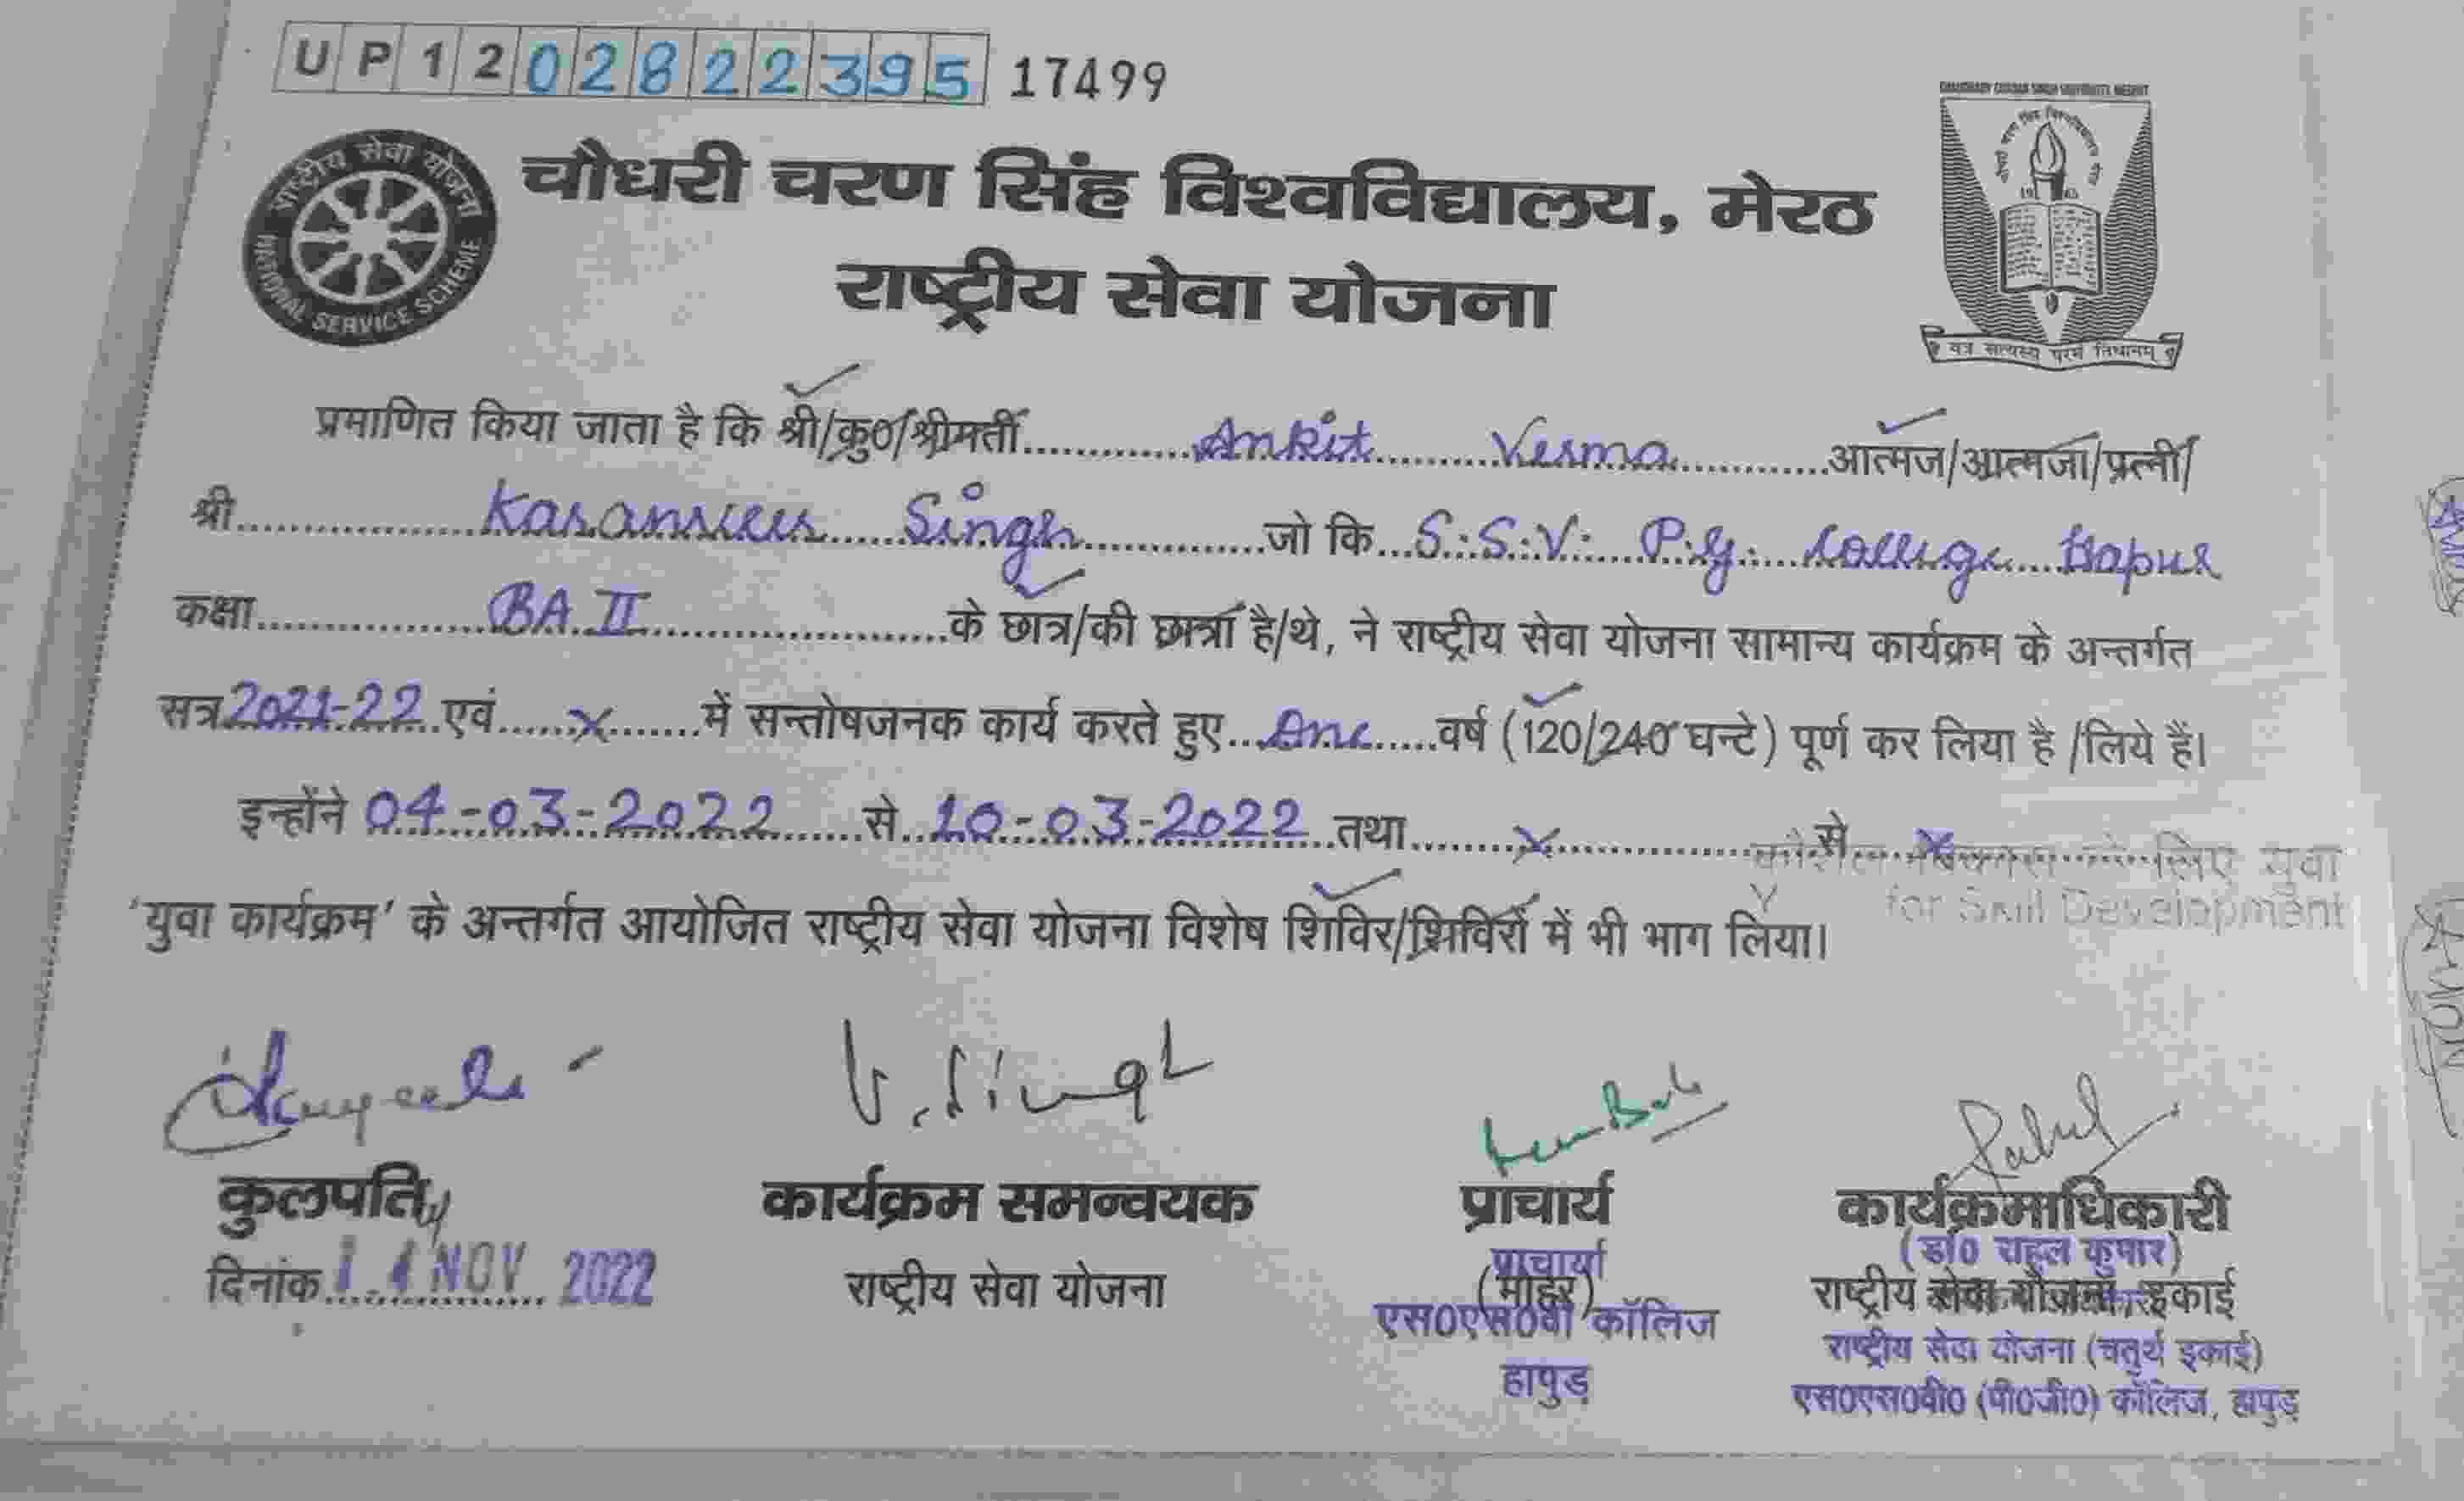 UP1202822395 17499
राष्ट्रीय सेवा योजना
NATIONAL SERVICE SCHEME
CHAUDHARY CHARAN SINGH UNIVERSITY, MEERUT
चौधरी चरण सिंह विश्वविद्यालय, मेरठ
राष्ट्रीय सेवा योजना
यत्र सत्यस्य परमं निधानम्
प्रमाणित किया जाता है कि श्री/कु0/श्रीमती Ankit Verma आत्मज/आत्मजा/पत्नी/
श्री Karamveer Singh जो कि S.S.V. P.g. College Hapur
कक्षा BA II के छात्र/की छात्रा है/थे, ने राष्ट्रीय सेवा योजना सामान्य कार्यक्रम के अन्तर्गत
सत्र 2021-22 एवं x में सन्तोषजनक कार्य करते हुए One वर्ष (120/240 घन्टे) पूर्ण कर लिया है /लिये हैं।
इन्होंने 04-03-2022 से 10-03-2022 तथा x से x
के लिए युवा
'युवा कार्यक्रम' के अन्तर्गत आयोजित राष्ट्रीय सेवा योजना विशेष शिविर/शिविरों में भी भाग लिया।
for Skill Development
V. Singh
Rahul
कुलपति कार्यक्रम समन्वयक प्राचार्य कार्यक्रमाधिकारी
(डॉ0 राहुल कुमार)
दिनांक 14 NOV 2022 राष्ट्रीय सेवा योजना प्राचार्या (मोहर) राष्ट्रीय सेवा योजना, इकाई
एस0एस0वी कॉलिज
राष्ट्रीय सेवा योजना (चतुर्थ इकाई)
हापुड़
एस0एस0वी0 (पी0जी0) कॉलिज, हापुड़